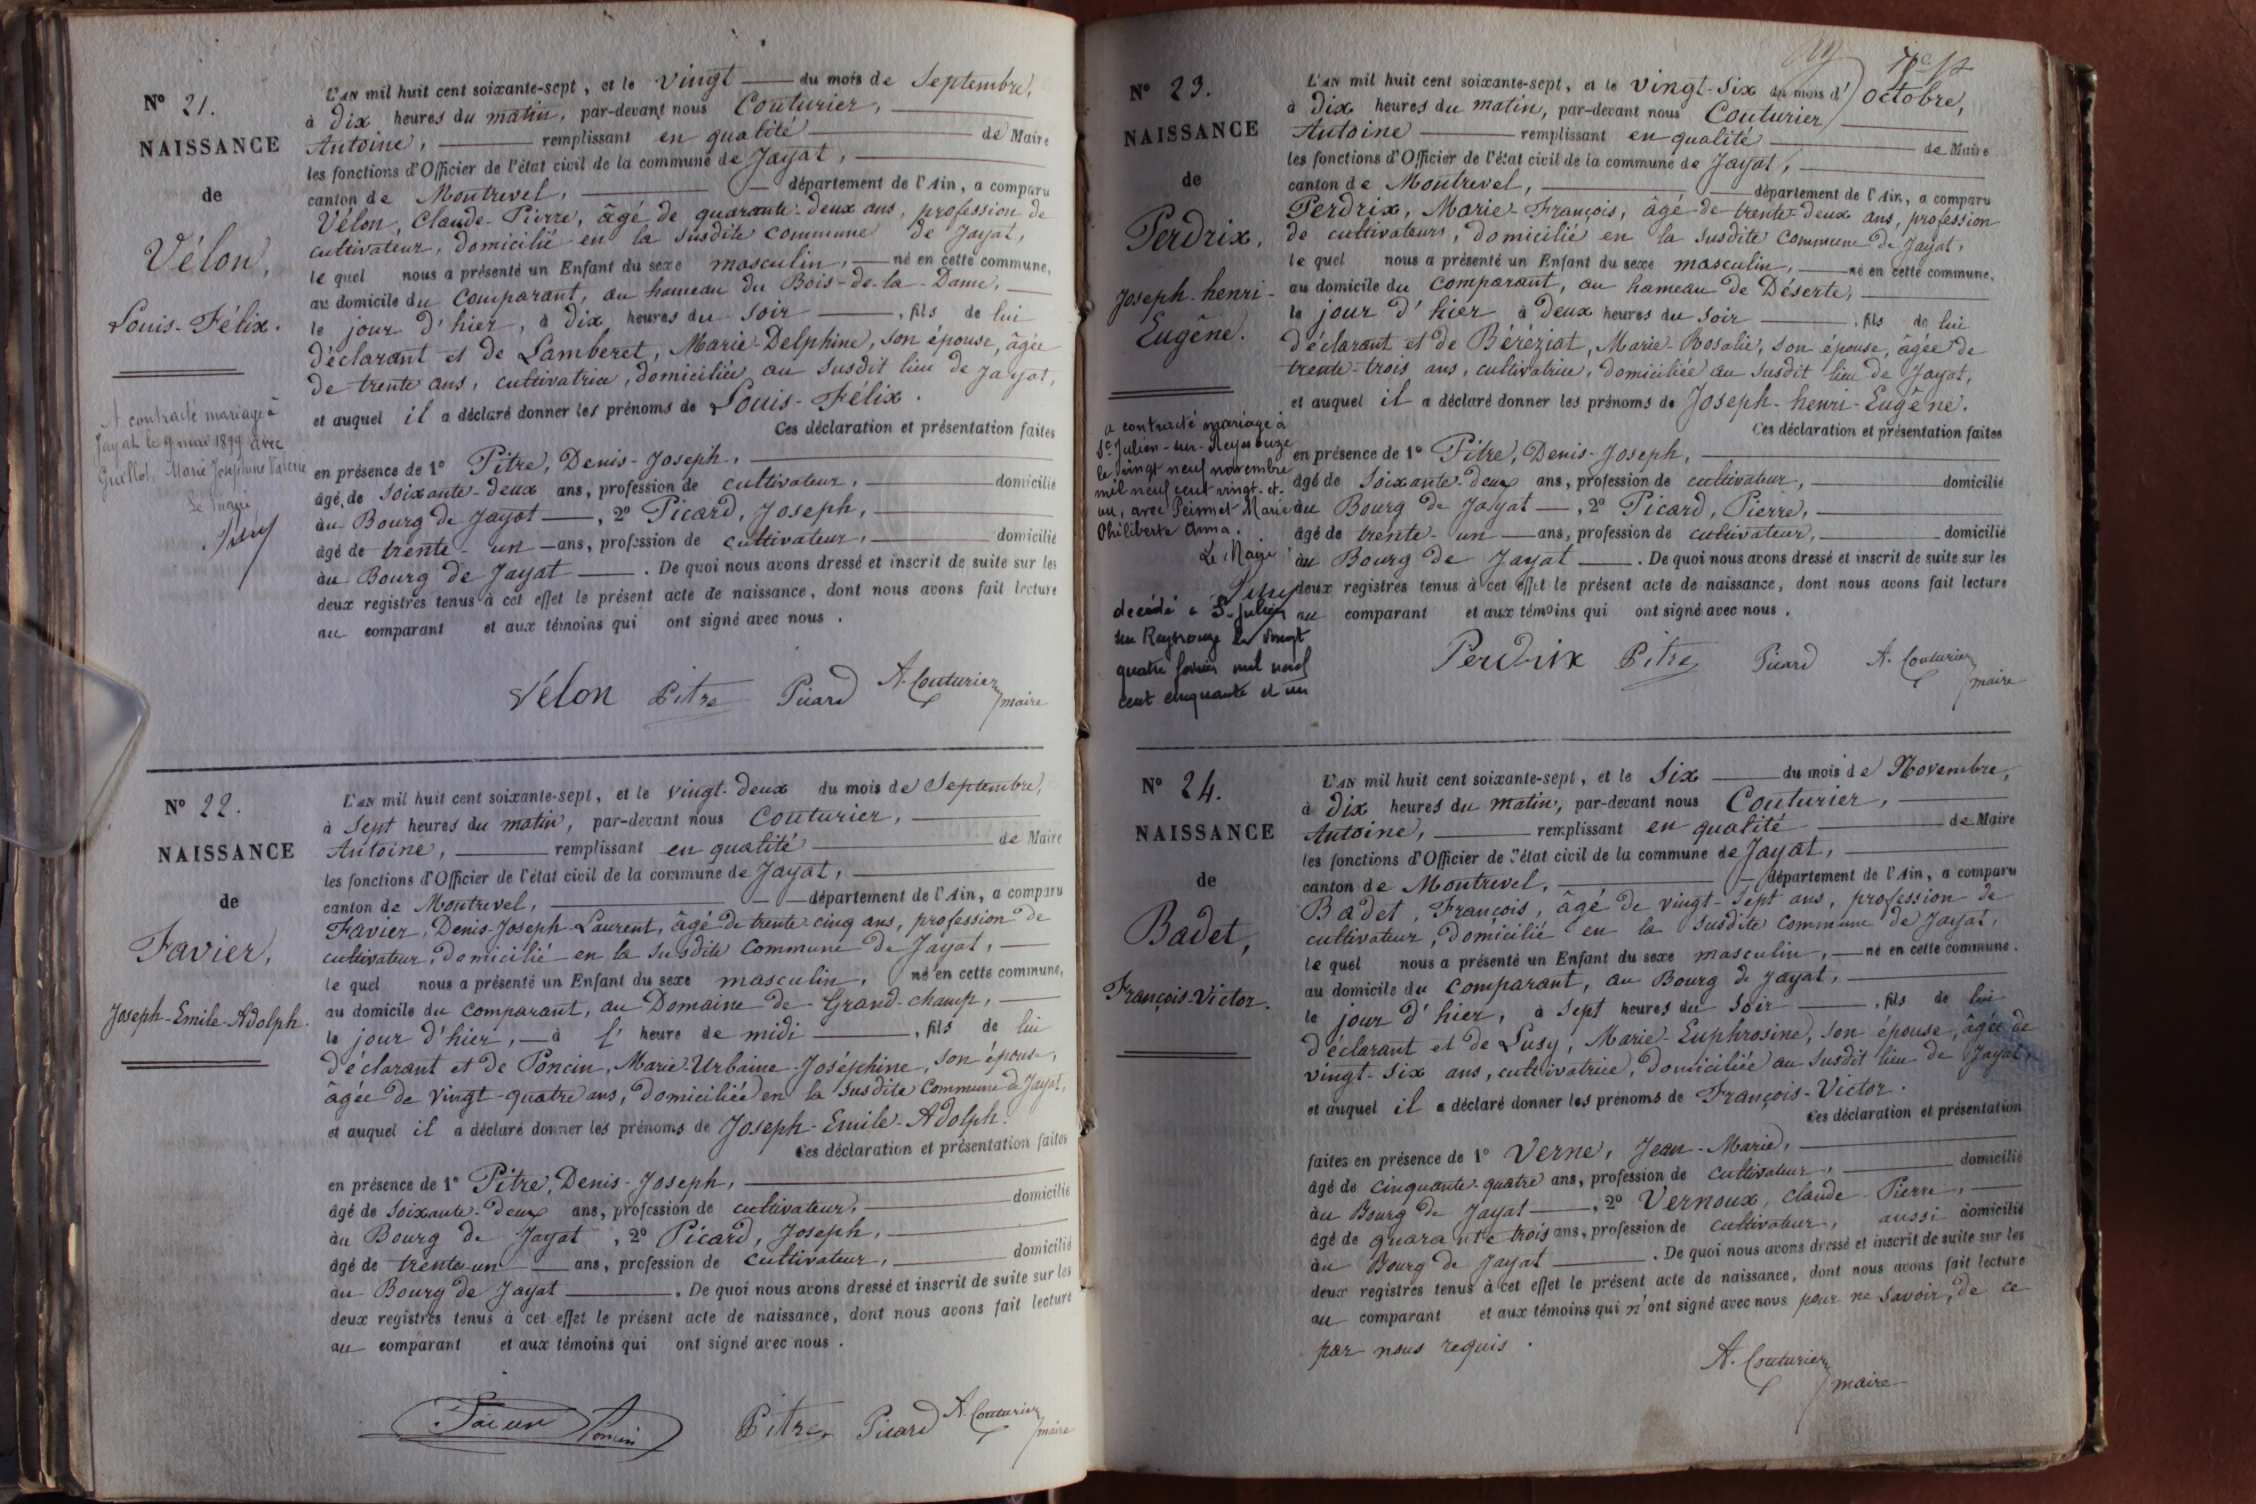 Nº 21.
NAISSANCE
de
Vélon,
Louis-Félix.
A contracté mariage à
Jayat le 9 mai 1899 avec
Guillot, Marie Joséphine Valérie
Le maire
L'AN mil huit cent soixante-sept, et le vingt du mois de Septembre,
à dix heures du matin, par-devant nous Couturier,
Antoine, remplissant en qualité de Maire
les fonctions d'Officier de l'état civil de la commune de Jayat,
canton de Montrevel, département de l'Ain, a comparu
Vélon, Claude-Pierre, âgé de quarante-deux ans, profession de
cultivateur, domicilié en la susdite commune de Jayat,
le quel nous a présenté un Enfant du sexe masculin, né en cette commune,
au domicile du comparant, au hameau du Bois-de-la-Dame,
le jour d'hier, à dix heures du soir, fils de lui
déclarant et de Lamberet, Marie-Delphine, son épouse, âgée
de trente ans, cultivatrice, domiciliée au susdit lieu de Jayat,
et auquel il a déclaré donner les prénoms de Louis-Félix.
Ces déclaration et présentation faites
en présence de 1º Pitre, Denis-Joseph,
âgé de soixante-deux ans, profession de cultivateur, domicilié
au Bourg de Jayat, 2º Picard, Joseph,
âgé de trente-un ans, profession de cultivateur, domicilié
au Bourg de Jayat. De quoi nous avons dressé et inscrit de suite sur les
deux registres tenus à cet effet le présent acte de naissance, dont nous avons fait lecture
au comparant et aux témoins qui ont signé avec nous.
Vélon Pitre Picard A. Couturier
maire
Nº 22.
NAISSANCE
de
Favier,
Joseph-Emile-Adolph.
L'AN mil huit cent soixante-sept, et le vingt-deux du mois de Septembre,
à sept heures du matin, par-devant nous Couturier,
Antoine, remplissant en qualité de Maire
les fonctions d'Officier de l'état civil de la commune de Jayat,
canton de Montrevel, département de l'Ain, a comparu
Favier, Denis-Joseph-Laurent, âgé de trente-cinq ans, profession de
cultivateur, domicilié en la susdite commune de Jayat,
le quel nous a présenté un Enfant du sexe masculin, né en cette commune,
au domicile du comparant, au Domaine de Grand-champ,
le jour d'hier, à l'heure de midi, fils de lui
déclarant et de Poncin, Marie-Urbaine-Joséphine, son épouse,
âgée de vingt-quatre ans, domiciliée en la susdite commune de Jayat,
et auquel il a déclaré donner les prénoms de Joseph-Emile-Adolph.
Ces déclaration et présentation faites
en présence de 1º Pitre, Denis-Joseph,
âgé de soixante-deux ans, profession de cultivateur, domicilié
au Bourg de Jayat, 2º Picard, Joseph,
âgé de trente-un ans, profession de cultivateur, domicilié
au Bourg de Jayat. De quoi nous avons dressé et inscrit de suite sur les
deux registres tenus à cet effet le présent acte de naissance, dont nous avons fait lecture
au comparant et aux témoins qui ont signé avec nous.
Poncin Pitre Picard A. Couturier
maire
Nº 23.
NAISSANCE
de
Perdrix,
Joseph-henri-
Eugène.
a contracté mariage à
St Julien-sur-Reyssouze
le vingt neuf novembre
mil neuf cent vingt-et-
un, avec Marie
Philiberte Anna.
Le Maire
décédé à St Julien
sur Reyssouze le vingt
quatre février mil neuf
cent cinquante et un
L'AN mil huit cent soixante-sept, et le vingt-six du mois d'octobre,
à dix heures du matin, par-devant nous Couturier
Antoine remplissant en qualité de Maire
les fonctions d'Officier de l'état civil de la commune de Jayat,
canton de Montrevel, département de l'Ain, a comparu
Perdrix, Marie-François, âgé de trente-deux ans, profession
de cultivateurs, domicilié en la susdite commune de Jayat,
le quel nous a présenté un Enfant du sexe masculin, né en cette commune,
au domicile du comparant, au hameau de Déserte,
le jour d'hier à deux heures du soir, fils de lui
déclarant et de Béréziat, Marie-Rosalie, son épouse, âgée de
trente-trois ans, cultivatrice, domiciliée au susdit lieu de Jayat,
et auquel il a déclaré donner les prénoms de Joseph-henri-Eugène.
Ces déclaration et présentation faites
en présence de 1º Pitre, Denis-Joseph,
âgé de soixante-deux ans, profession de cultivateur, domicilié
au Bourg de Jayat, 2º Picard, Pierre,
âgé de trente-un ans, profession de cultivateur, domicilié
au Bourg de Jayat. De quoi nous avons dressé et inscrit de suite sur les
deux registres tenus à cet effet le présent acte de naissance, dont nous avons fait lecture
au comparant et aux témoins qui ont signé avec nous.
Perdrix Pitre Picard A. Couturier
maire
Nº 24.
NAISSANCE
de
Badet,
François-Victor.
L'AN mil huit cent soixante-sept, et le six du mois de Novembre,
à dix heures du matin, par-devant nous Couturier,
Antoine, remplissant en qualité de Maire
les fonctions d'Officier de l'état civil de la commune de Jayat,
canton de Montrevel, département de l'Ain, a comparu
Badet, François, âgé de vingt-sept ans, profession de
cultivateur, domicilié en la susdite commune de Jayat,
le quel nous a présenté un Enfant du sexe masculin, né en cette commune.
au domicile du comparant, au Bourg de Jayat,
le jour d'hier, à sept heures du soir, fils de lui
déclarant et de Lusy, Marie-Euphrosine, son épouse, âgée de
vingt-six ans, cultivatrice, domiciliée au susdit lieu de Jayat,
et auquel il a déclaré donner les prénoms de François-Victor.
Ces déclaration et présentation
faites en présence de 1º Verne, Jean-Marie,
âgé de cinquante-quatre ans, profession de cultivateur, domicilié
au Bourg de Jayat, 2º Vernoux, Claude-Pierre,
âgé de quarante trois ans, profession de cultivateur, aussi domicilié
au Bourg de Jayat. De quoi nous avons dressé et inscrit de suite sur les
deux registres tenus à cet effet le présent acte de naissance, dont nous avons fait lecture
au comparant et aux témoins qui n'ont signé avec nous pour ne savoir, de ce
par nous requis.
A. Couturier
maire